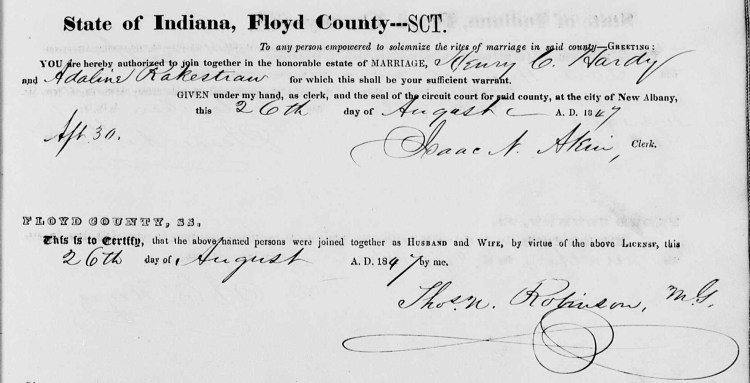 State of Indiana, Floyd County---SCT.
To any person empowered to solemnize the rites of marriage in said county—GREETING:
YOU are hereby authorized to join together in the honorable estate of MARRIAGE, Henry C. Hardy
and Adaline Rakestraw for which this shall be your sufficient warrant.
GIVEN under my hand, as clerk, and the seal of the circuit court for said county, at the city of New Albany,
this 26th day of August A. D. 1847
Aft. 30.
Isaac N. Akin, Clerk.
FLOYD COUNTY, SS,
This is to Certify, that the above named persons were joined together as HUSBAND and WIFE, by virtue of the above LICENSE, this
26th day of August A. D. 1847 by me.
Thos. N. Robinson, M.G.